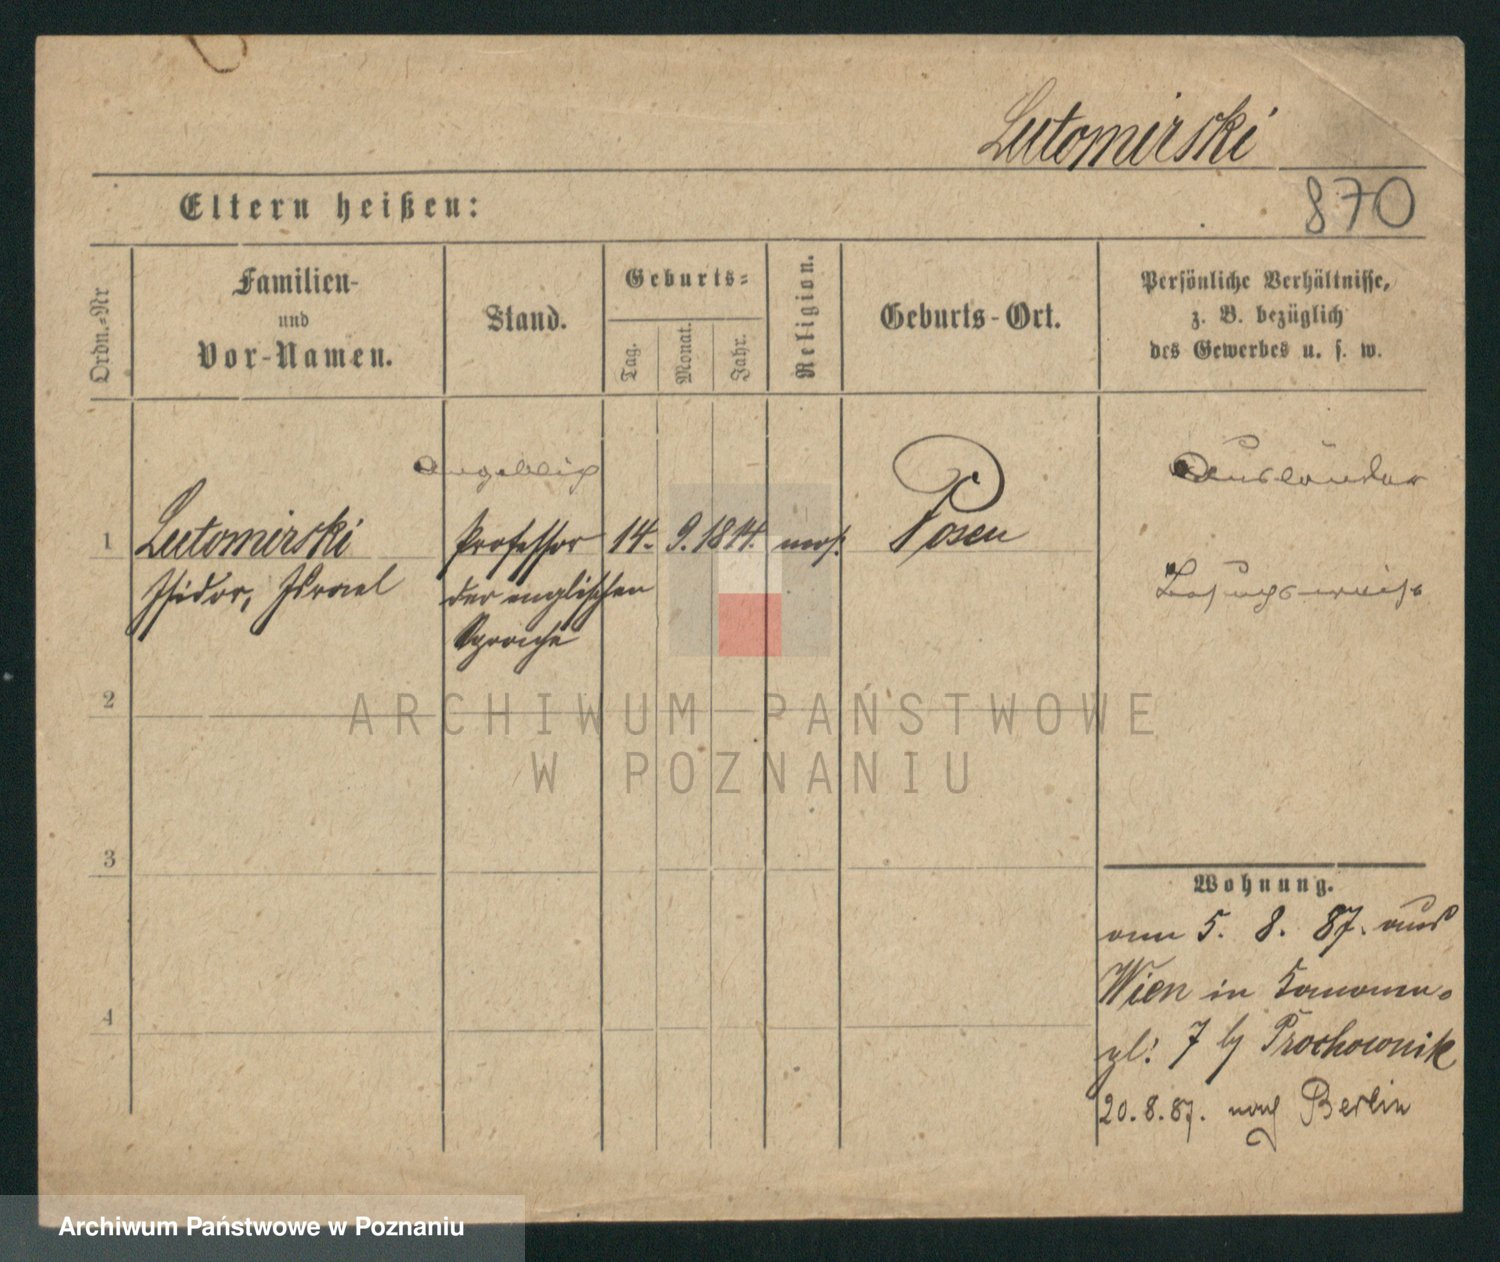 Lutomirski
870
Eltern heißen:
Ordn.-Nr
Familien-
und
Vor-Namen.
Stand.
Geburts-
Tag.
Monat.
Jahr.
Religion.
Geburts-Ort.
Persönliche Verhältnisse,
z. B. bezüglich
des Gewerbes u. s. w.
angeblich
Ausländer
1 Lutomirski Professor 14. 9. 1814. mos. Posen
Isidor, Israel der englischen
Sprache
Besuchsweise
2
3
4
Wohnung.
5. 8. 87. aus
Wien in
7 b/ Prochownik
20.8.87. nach Berlin
ARCHIWUM PAŃSTWOWE
W POZNANIU
Archiwum Państwowe w Poznaniu